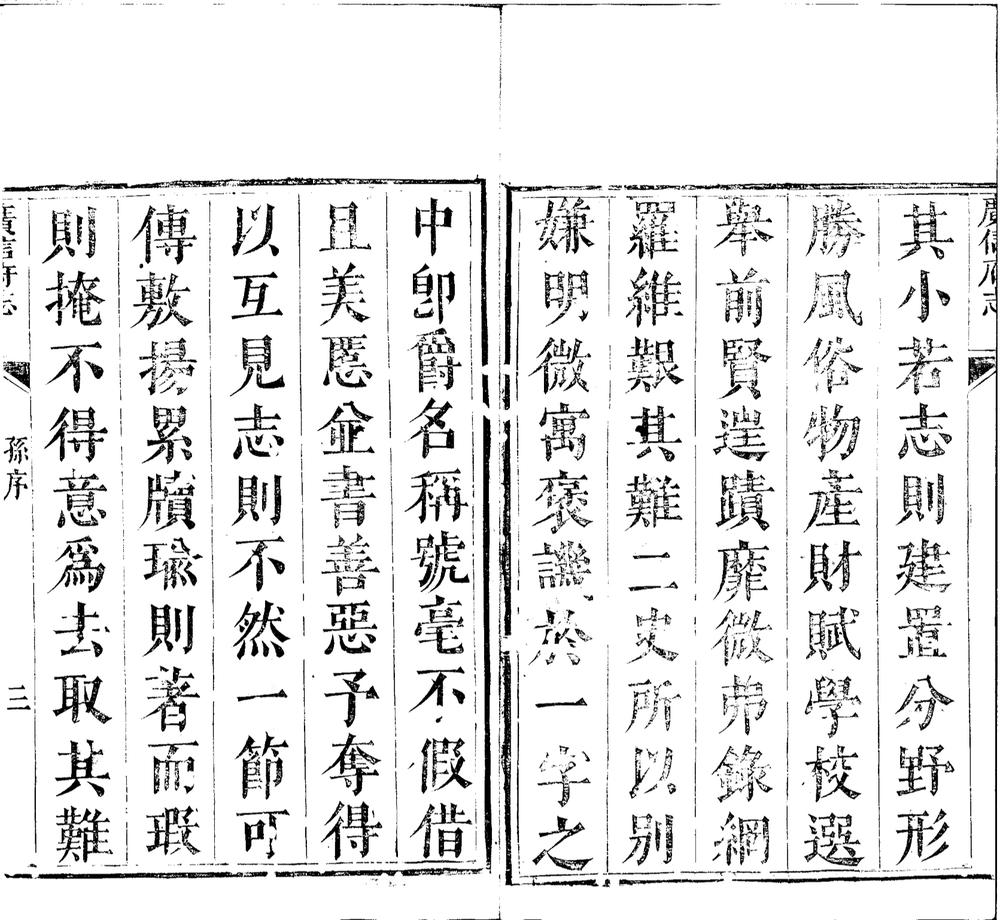 廣信府志
其小若志則建置分野形
勝風俗物產財賦學校選
舉前賢遑蹟靡微弗錄網
羅維艱其難二史所以別
嫌明微寓褒譏於一字之
中卽爵名稱號毫不假借
且美慝並書善惡予奪得
以互見志則不然一節可
傳敷揚累牘瑜則著而瑕
則掩不得意爲去取其難
廣信府志
孫序
三